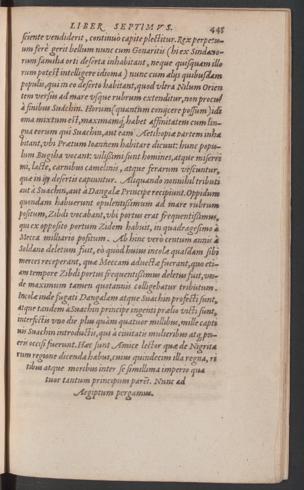 LIBER SEPTIMVS. 448
sciente vendiderit, continuò capite plectitur. Rex perpetuum
ferè gerit bellum nunc cum Goraritis (hi ex Sindano-
rum familia orti deserta inhabitant, neque quisquam illo
rum potest intelligere idioma) nunc cum alijs quibusdam
populis, qui in eo deserto habitant, quod vltra Nilum Orien
tem versus ad mare vsque rubrum extenditur, non procul
à finibus Suachin. Horum (quantum conijcere possum) idi
oma mixtum est, maximamq́; habet affinitatem cum lin-
gua eorum qui Suachin, aut eam Aethiopiæ partem inha
bitant, vbi Prætum Ioannem habitare dicunt: hunc popu-
lum Bugiha vocant: vilissimi sunt homines, atque miserri
mi, lacte, carnibus camelinis, atque ferarum vescuntur,
quæ in ijs desertis capiuntur. Aliquando nonnihil tributi
aut à Suachin, aut à Dangalæ Principe recipiunt. Oppidum
quondam habuerunt opulentissimum ad mare rubrum
positum, Zibid vocabant, vbi portus erat frequentissimus,
qui ex opposito portum Zidem habuit, in quadragesimo à
Mecca milliario positum. Ab hinc verò centum annis à
Soldano deletum fuit, eò quòd huius incolæ quasdam sibi
merces reciperant, quæ Meccam aduectæ fuerant, quo eti-
am tempore Zibid portus frequentissimus deletus fuit, vn-
de maximum tamen quotannis colligebatur tributum.
Incolæ inde fugati Dangalam atque Suachin profecti sunt,
atque tandem à Suachin principe ingenti prælio victi sunt,
interfectis vno die plus quàm quatuor millibus, mille capti
vis Suachin introductis, qui à ciuitatis mulieribus atq́; pu-
eris occisi fuerunt. Hæc sunt Amice lector quæ de Nigrita
rum regione dicenda habui, cuius quindecim illa regna, ri
tibus atque moribus inter se simillima imperio qua
tuor tantum principum paret. Nunc ad
Aegiptum pergamus.